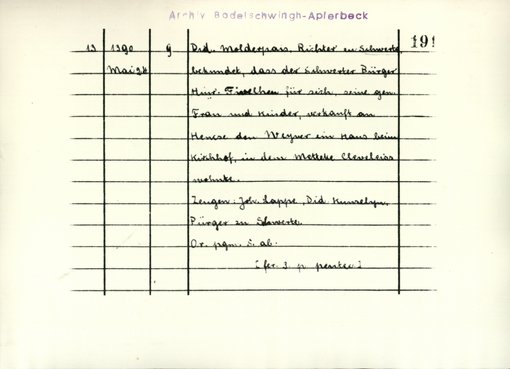 Archiv Bodelschwingh-Aplerbeck
191
13 1390 g Did. Molderpas, Richter zu Schwerte
Mai 24 bekundet, dass der Schwerter Bürger
Hinr. für sich, seine gen.
Frau und Kinder, verkauft an
Henese den Weyner ein Haus beim
Kirchhof, in dem Metteke Cleveleiss
wohnte.
Zeugen: Joh. Lappe, Did. Kunselyn,
Bürger zu Schwerte.
Or. pgm. S. ab.
[fer. 3. p. pentec.]